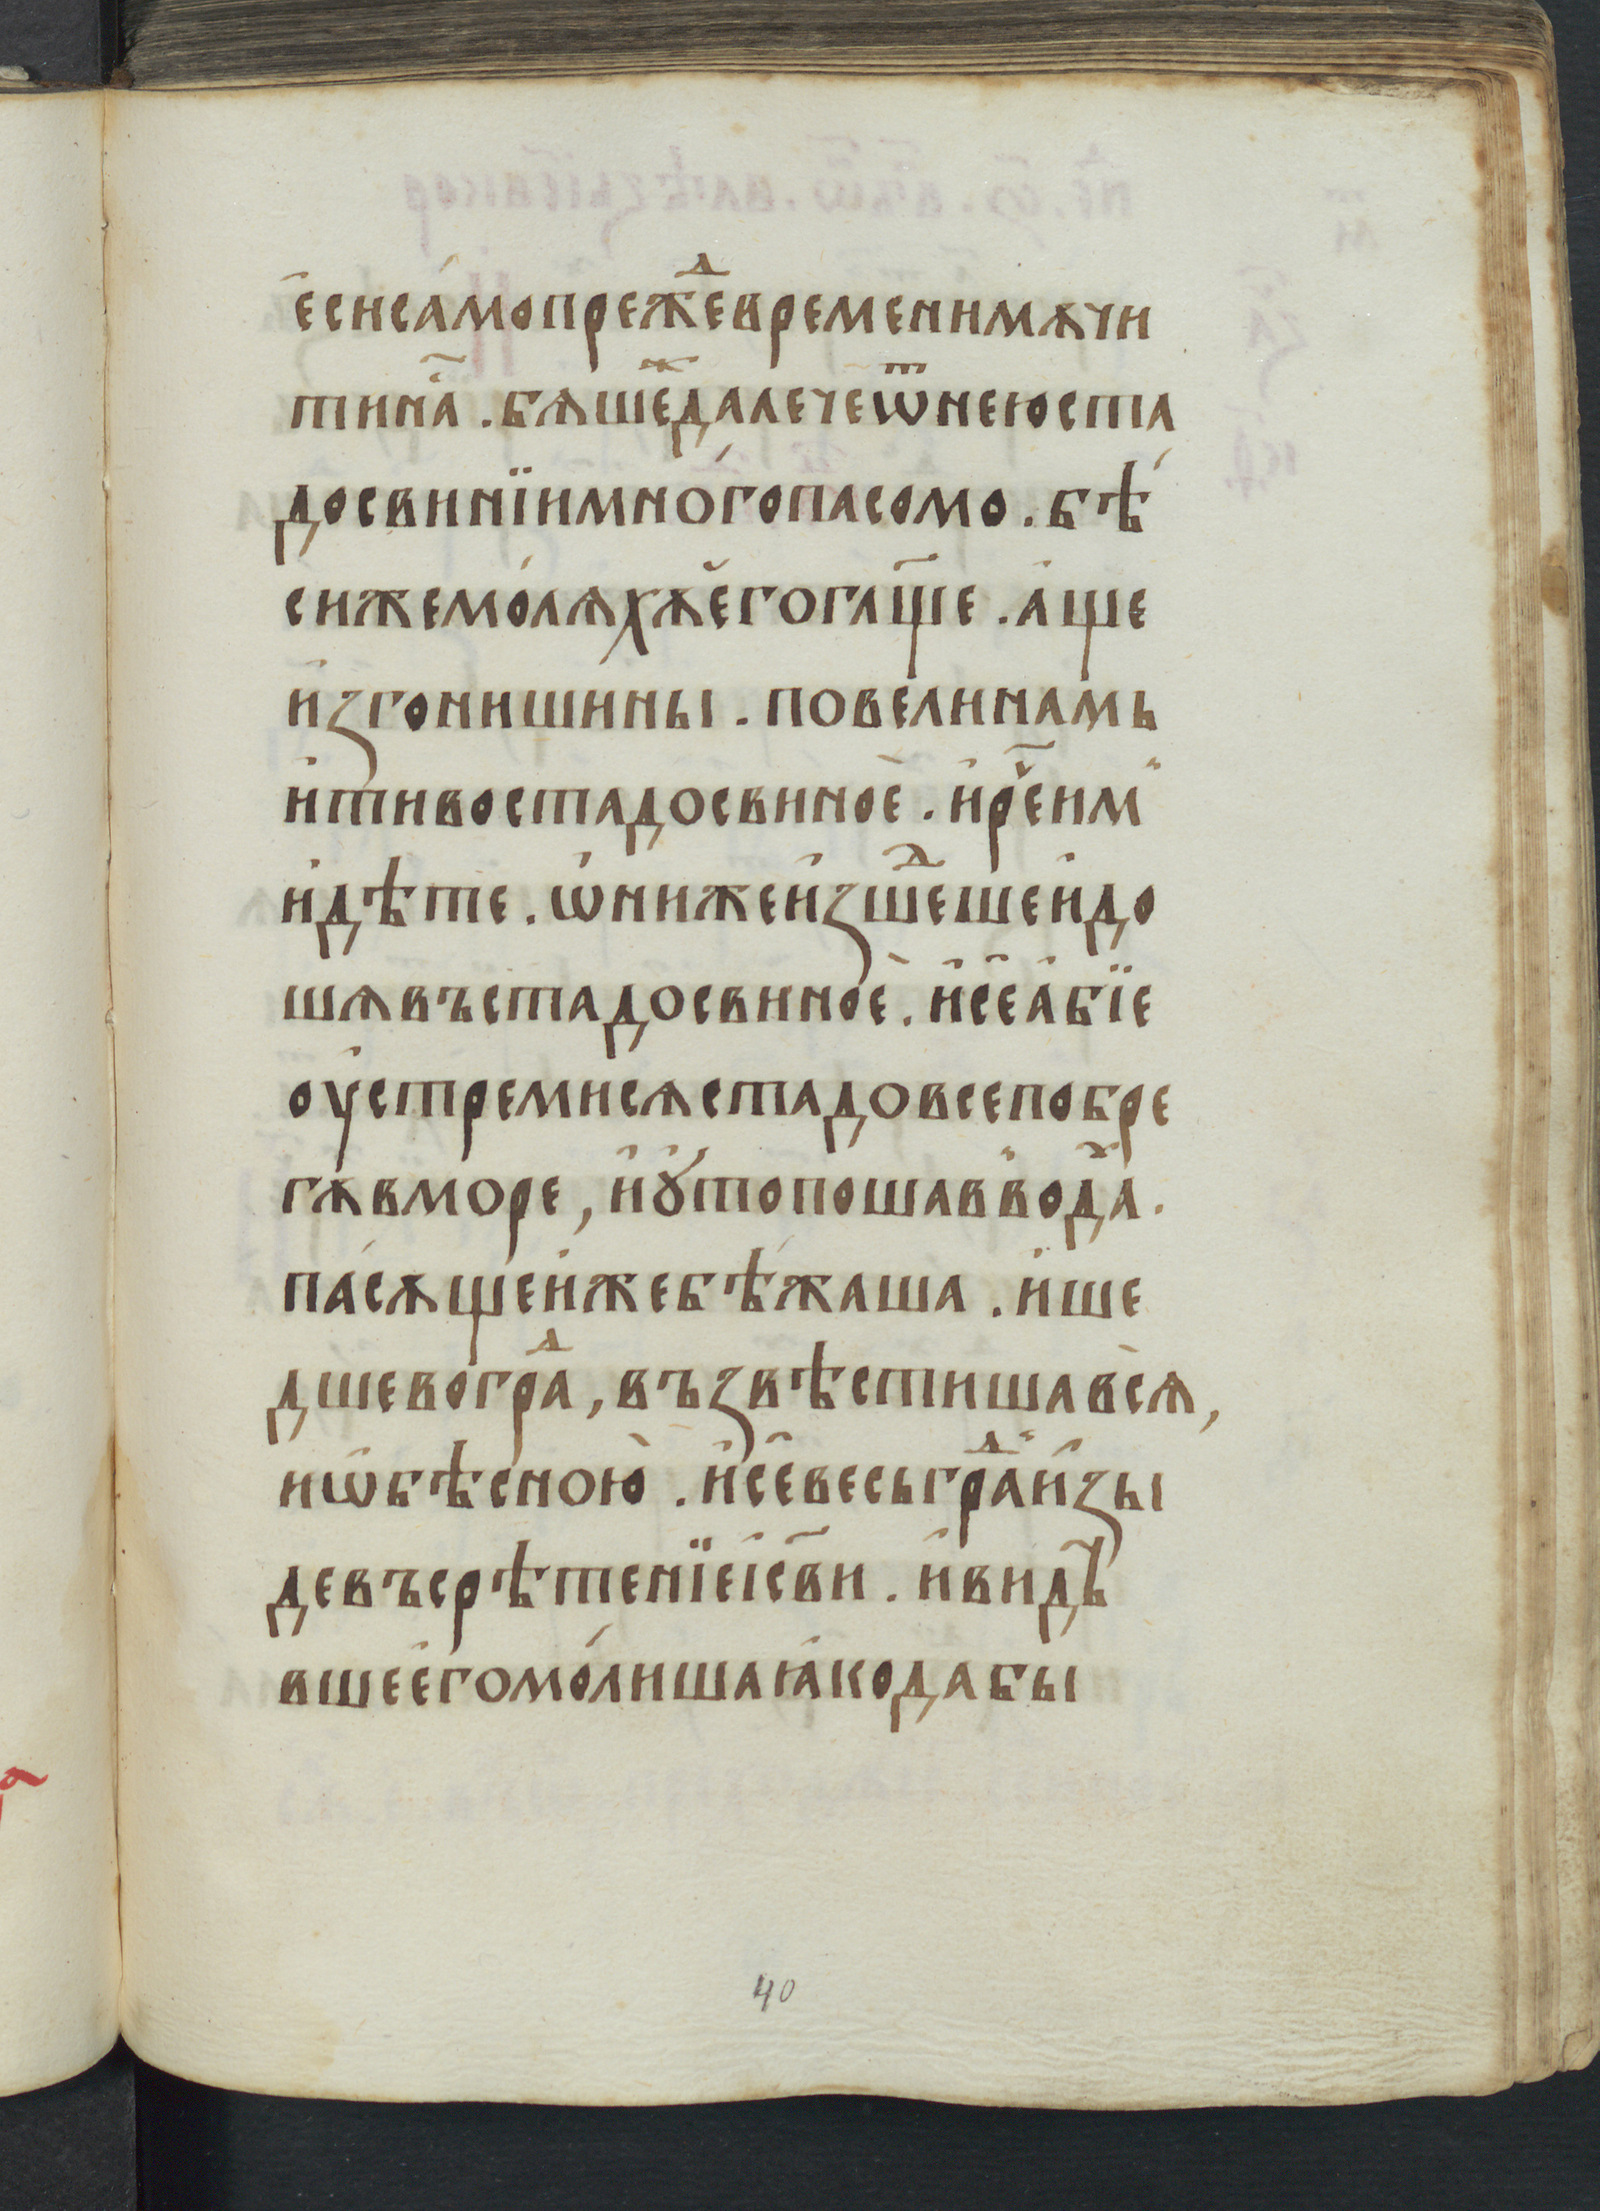 е҆сиса́мопрежⷣевременимѫчи
тина̑ . бѧшеⷤдалечеѿнеюста
досвинїимно́гопасомо . бѣ́
сижемо́лѧхѫе҆гогл҃ще . а҆ще
и҆згонишины . повели̇намь
и҆тивостадосвиноѐ . и҆рече҃им
и҆дѣте . ѡ҆нижеи҆зшеⷣшеидо
шѧвъстадосвиноѐ . и҆се҆а҆бїе
оу҆стремисѧстадовсепобре
гѫвморе , и҆ꙋ҆топошаввода̑ⷯ .
па́сѫщеи҆жебѣ́жаша . и҆ше
дшевограⷣ , възвѣстишавсѧ̀ ,
иѡ҆бѣсною̀ . и҆се҆весьграⷣи҆зы
девъсрѣтенїеі҆с҃ви . и҆видѣ
вшеего҆мо́лишаꙗ҆кодабы
40